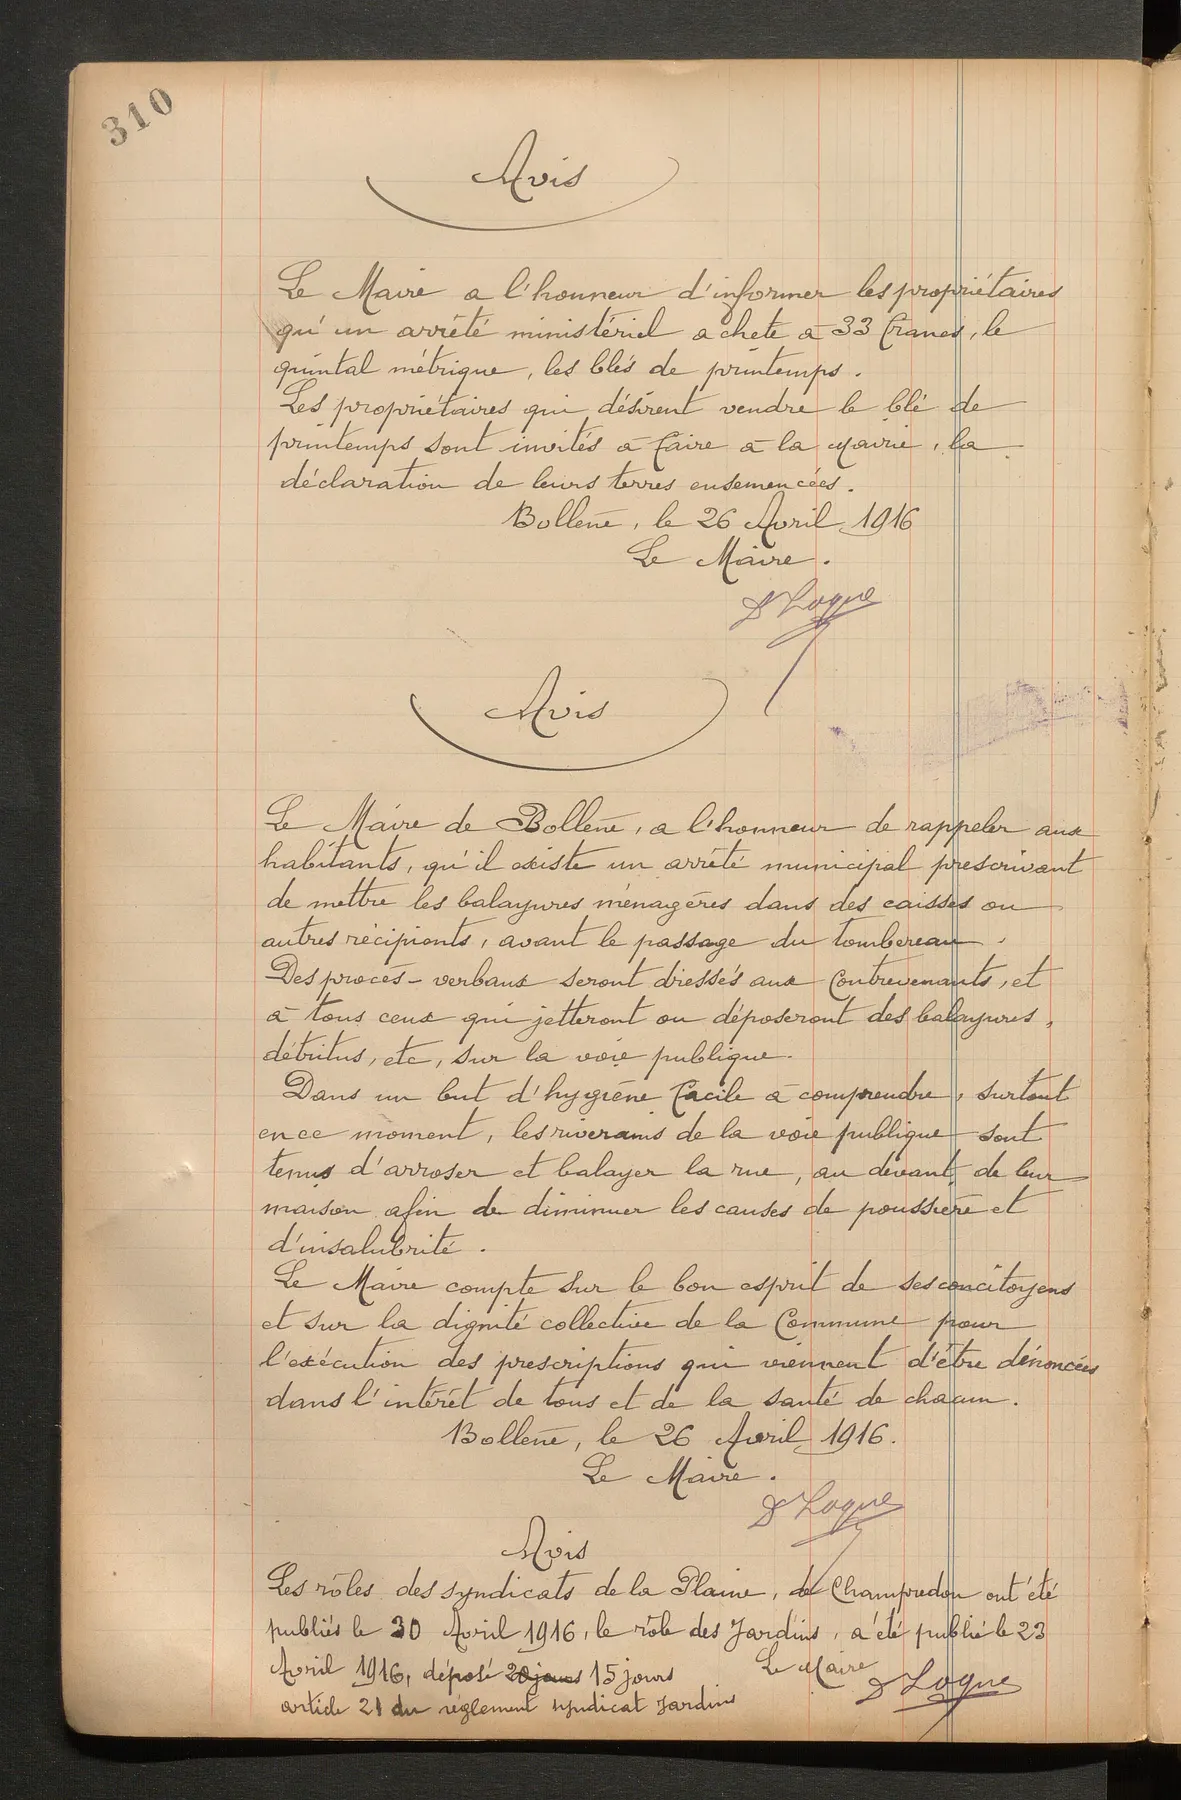 310
Avis
Le Maire a l'honneur d'informer les propriétaires
qu'un arrêté ministériel achete à 33 francs, le
quintal métrique, les blés de printemps.
Les propriétaires qui désirent vendre le blé de
printemps sont invités à faire à la Mairie, la
déclaration de leurs terres ensemencées.
Bollène, le 26 Avril 1916
Le Maire.
Dr Logue
Avis
Le Maire de Bollène, a l'honneur de rappeler aux
habitants, qu'il existe un arrêté municipal prescrivant
de mettre les balayures ménagères dans des caisses ou
autres récipients, avant le passage du tombereau.
Des procès-verbaux seront dressés aux contrevenants, et
à tous ceux qui jetteront ou déposeront des balayures,
détritus, etc, sur la voie publique.
Dans un but d'hygiène facile à comprendre, surtout
en ce moment, les riverains de la voie publique sont
tenus d'arroser et balayer la rue, au devant, de leur
maison afin de diminuer les causes de poussière et
d'insalubrité.
Le Maire compte sur le bon esprit de ses concitoyens
et sur la dignité collective de la Commune pour
l'exécution des prescriptions qui viennent d'être dénoncées
dans l'intérêt de tous et de la santé de chacun.
Bollène, le 26 Avril 1916.
Le Maire.
Dr Logue
Avis
Les rôles des syndicats de la Plaine, de Champredon ont été
publiés le 30 Avril 1916, le rôle des Jardins, a été publié le 23
Avril 1916, déposé 20 jours 15 jours
Le Maire
article 21 du règlement syndicat Jardins
Dr Logue